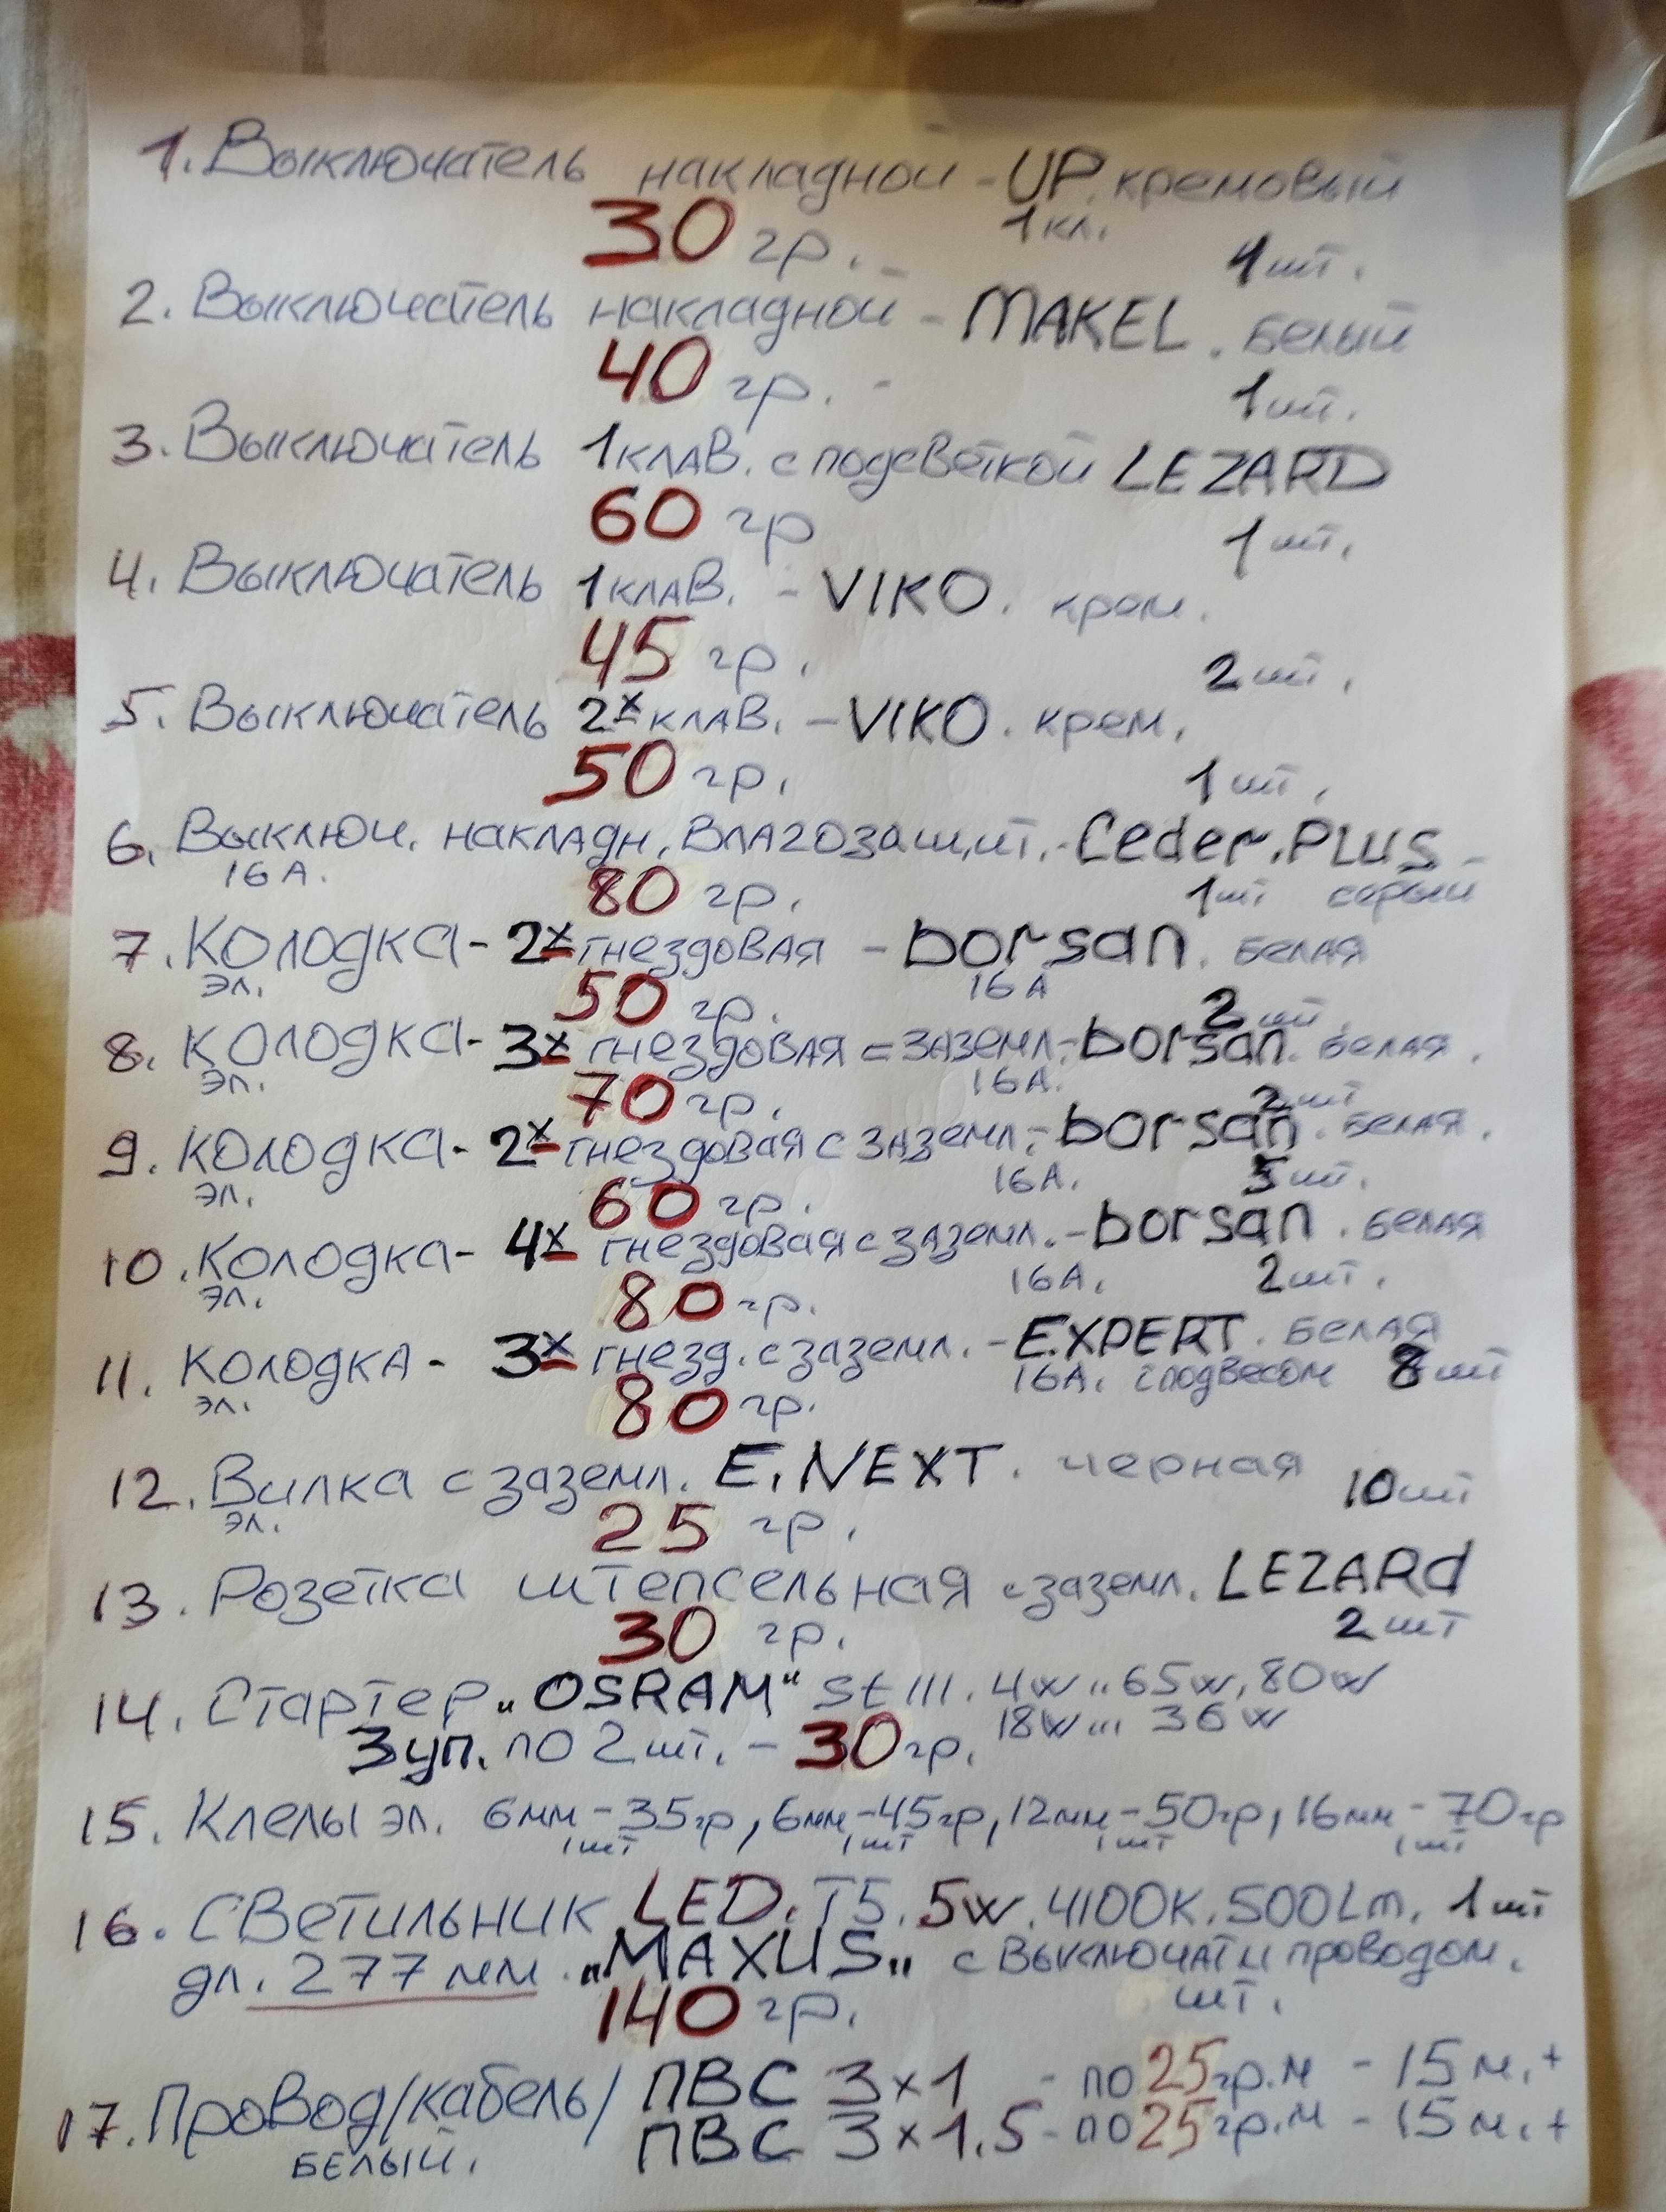 1. Выключатель накладной - UP. кремовый
1 кл.
30 гр.
1 шт.
2. Выключатель накладной - MAKEL. белый
40 гр. -
1 шт.
3. Выключатель 1 клав. с подсветкой LEZARD
60 гр
1 шт.
4. Выключатель 1 клав. - VIKO. крем.
45 гр.
2 шт.
5. Выключатель 2х клав. - VIKO. крем.
50 гр.
1 шт.
6. Выключ. накладн. влагозащит. - Ceder. PLUS -
16 А. 80 гр. 1 шт серый
7. Колодка - 2х гнездовая - borsan. белая
эл. 50 гр. 16 А 2 шт.
8. Колодка - 3х гнездовая с заземл. - borsan. белая.
эл. 70 гр. 16 А. 2 шт
9. Колодка - 2х гнездовая с заземл. - borsan. белая.
эл. 60 гр. 16 А. шт.
10. Колодка - 4х гнездовая с заземл. - borsan. белая
эл. 80 гр. 16 А. 2 шт.
11. Колодка - 3х гнезд. с заземл. - EXPERT. белая
эл. 80 гр. 16 А. с подвесом 8 шт
12. Вилка с заземл. E.NEXT. черная 10 шт
эл. 25 гр.
13. Розетка штепсельная с заземл. LEZARd
30 гр. 2 шт
14. Стартер „OSRAM" St 111. 4w .. 65w, 80w
18w... 36w
3 уп. по 2 шт. - 30 гр.
15. Клемы эл. 6мм - 35 гр, 6мм - 45 гр, 12мм - 50 гр, 16мм - 70 гр
1 шт 1 шт 1 шт 1 шт
16. Светильник LED. T5. 5w. 4100K. 500Lm. 1 шт
дл. 277 мм. „MAXUS„ с выключат и проводом.
140 гр. шт.
17. Провод/кабель/ ПВС 3х1 - по 25 гр.м - 15 м.+
белый. ПВС 3х1.5 - по 25 гр.м - 15 м.+